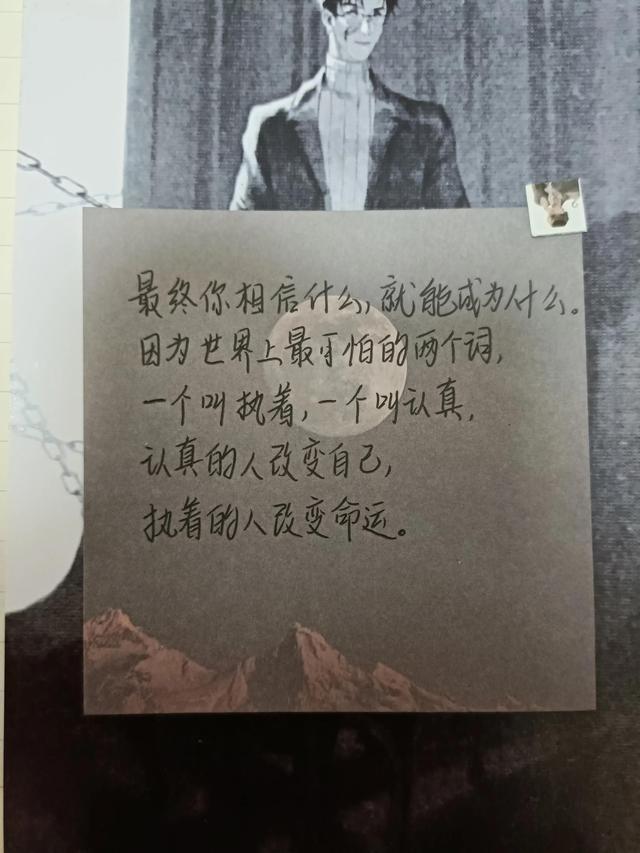 最终你相信什么,就能成为什么。
因为世界上最可怕的两个词,
一个叫执着,一个叫认真,
认真的人改变自己,
执着的人改变命运。